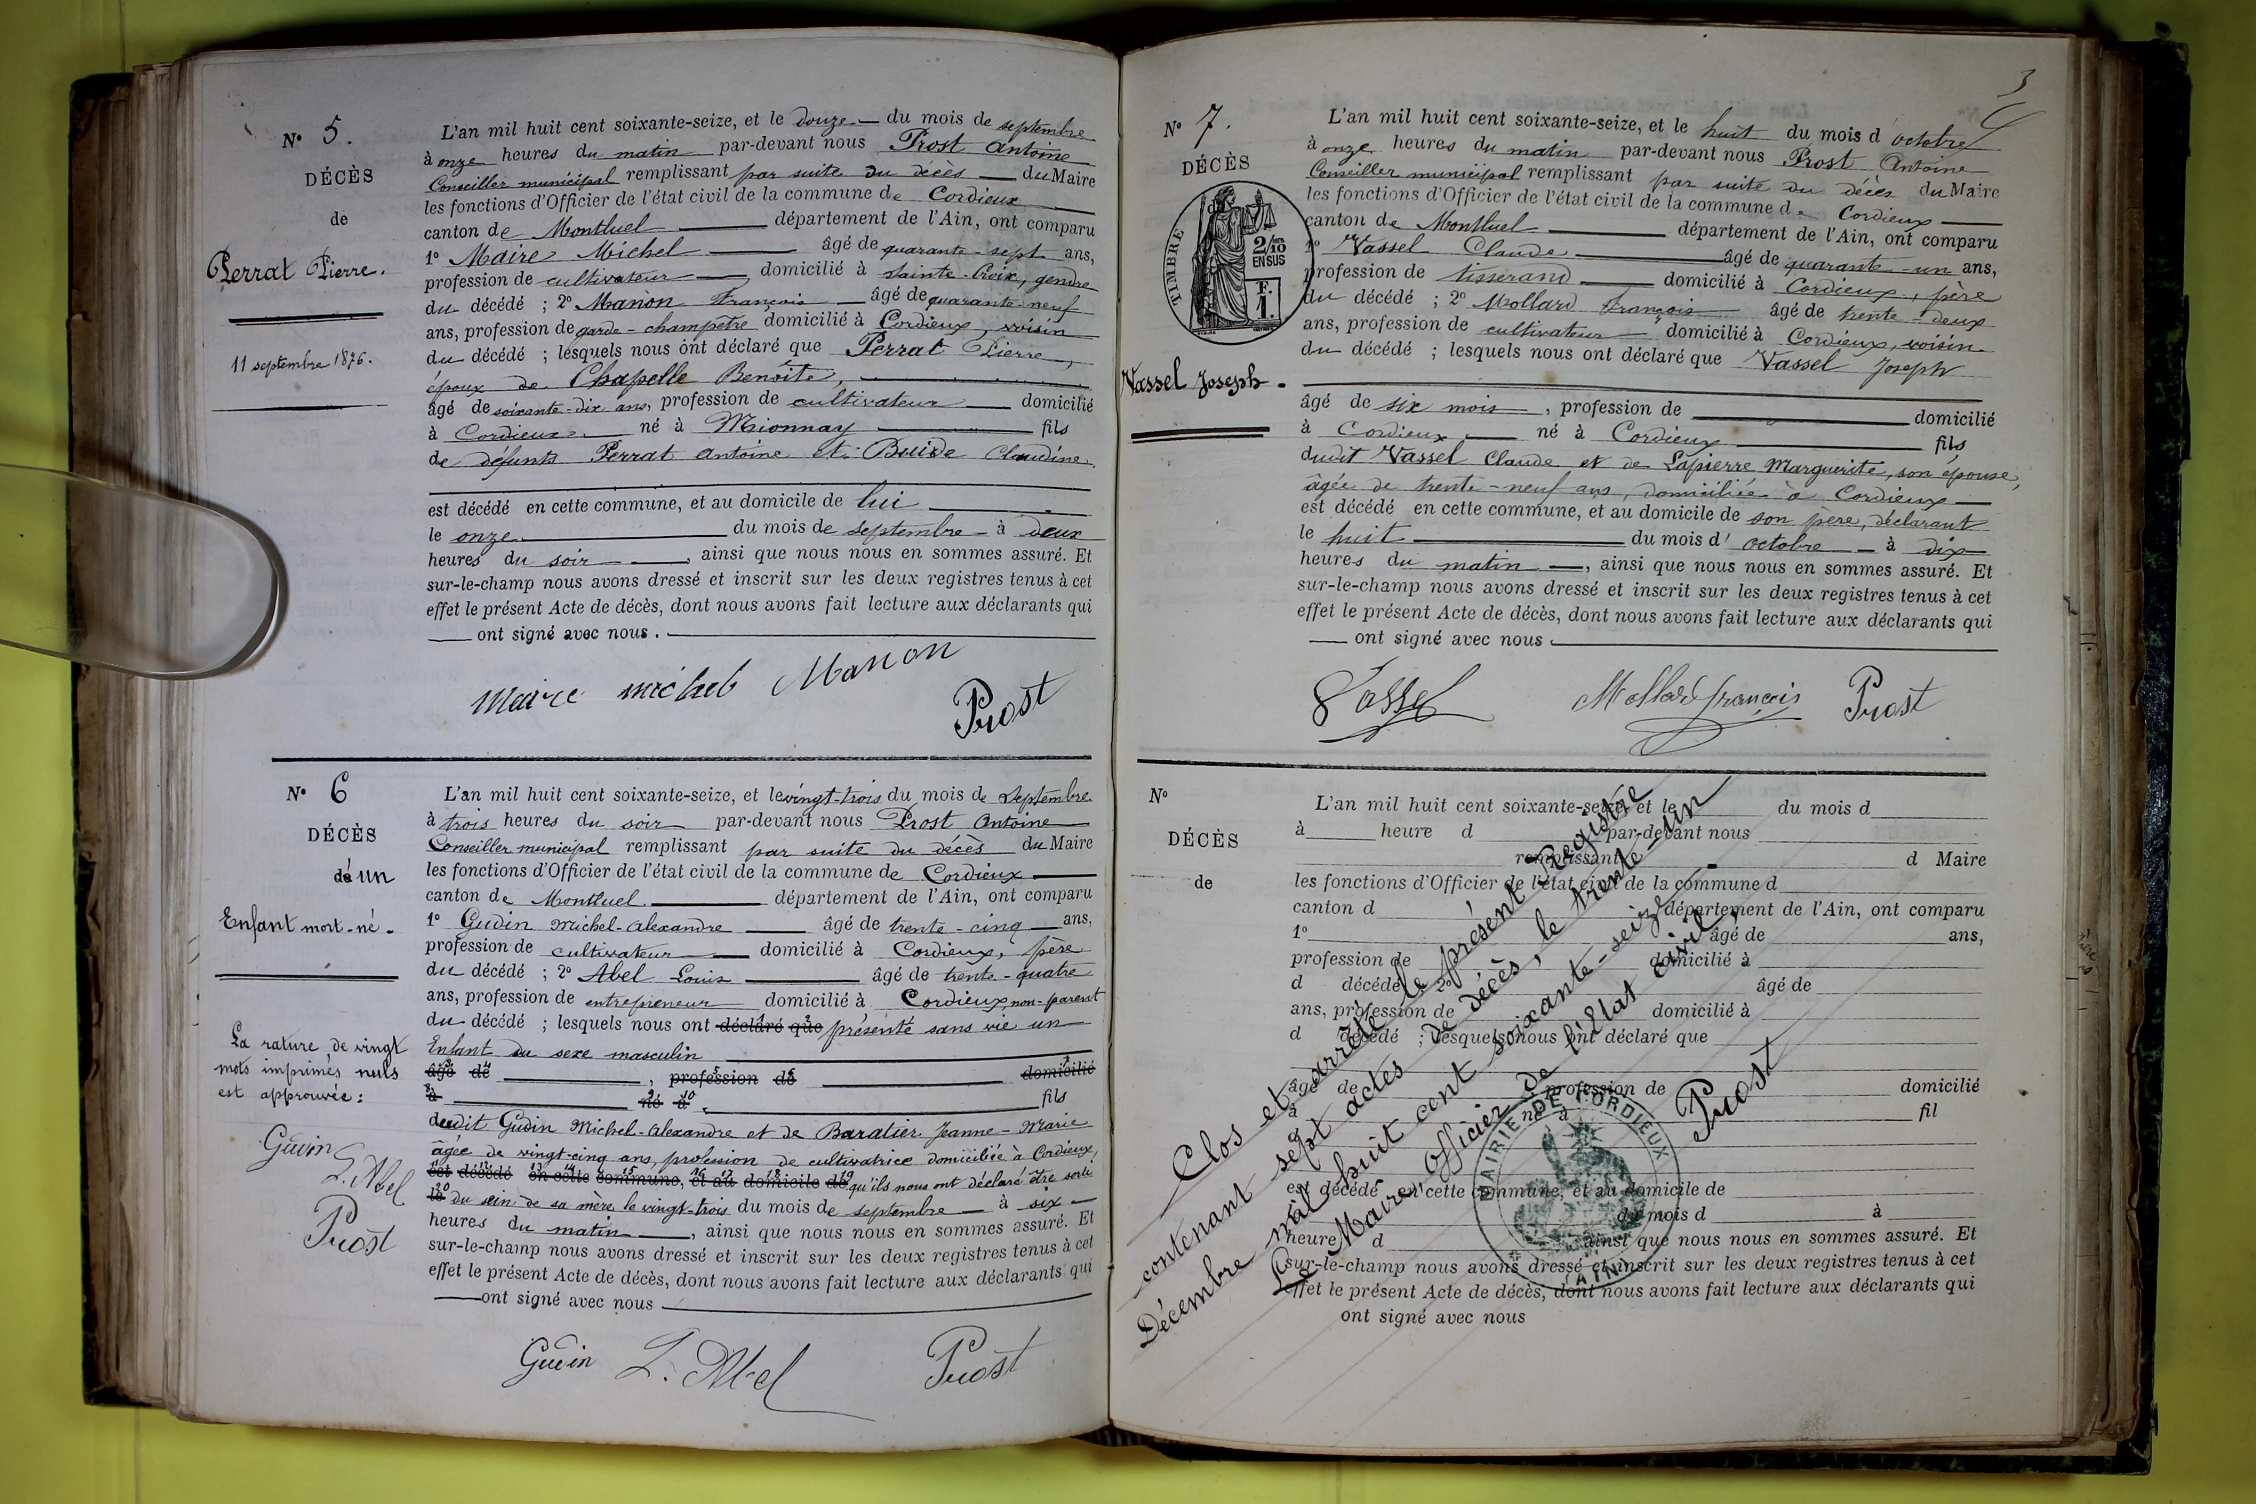 N° 5.
DÉCÈS
de
Perrat Pierre.
11 septembre 1876.
L'an mil huit cent soixante-seize, et le douze du mois de septembre
à onze heures du matin par-devant nous Prost Antoine
Conseiller municipal remplissant par suite du décès du Maire
les fonctions d'Officier de l'état civil de la commune de Cordieux
canton de Montluel département de l'Ain, ont comparu
1° Maire Michel âgé de quarante-sept ans,
profession de cultivateur domicilié à Sainte-Croix, gendre
du décédé ; 2° Manon François âgé de quarante-neuf
ans, profession de garde-champêtre domicilié à Cordieux, voisin
du décédé ; lesquels nous ont déclaré que Perrat Pierre,
époux de Chapelle Benoîte,
âgé de soixante-dix ans, profession de cultivateur domicilié
à Cordieux né à Mionnay fils
de défunts Perrat Antoine et Buide Claudine.
est décédé en cette commune, et au domicile de lui
le onze du mois de septembre à deux
heures du soir, ainsi que nous nous en sommes assuré. Et
sur-le-champ nous avons dressé et inscrit sur les deux registres tenus à cet
effet le présent Acte de décès, dont nous avons fait lecture aux déclarants qui
ont signé avec nous.
Maire michel Manon
Prost
N° 6
DÉCÈS
de un
Enfant mort-né.
La rature de vingt
mots imprimés nuls
est approuvée :
Gudin
L. Abel
Prost
L'an mil huit cent soixante-seize, et le vingt-trois du mois de Septembre
à trois heures du soir par-devant nous Prost Antoine
Conseiller municipal remplissant par suite du décès du Maire
les fonctions d'Officier de l'état civil de la commune de Cordieux
canton de Montluel département de l'Ain, ont comparu
1° Gudin Michel-Alexandre âgé de trente-cinq ans,
profession de cultivateur domicilié à Cordieux, père
du décédé ; 2° Abel Louis âgé de trente-quatre
ans, profession de entrepreneur domicilié à Cordieux non-parent
du décédé ; lesquels nous ont déclaré que présenté sans vie un
Enfant du sexe masculin
âgé de , profession de domicilié
à né à fils
dudit Gudin Michel-Alexandre et de Baratier Jeanne-Marie
âgée de vingt-cinq ans, profession de cultivatrice domiciliée à Cordieux,
est décédé en cette commune, et au domicile de qu'ils nous ont déclaré être sorti
le du sein de sa mère le vingt-trois du mois de septembre à six
heures du matin, ainsi que nous nous en sommes assuré. Et
sur-le-champ nous avons dressé et inscrit sur les deux registres tenus à cet
effet le présent Acte de décès, dont nous avons fait lecture aux déclarants qui
ont signé avec nous
Gudin L. Abel Prost
3
N° 7.
DÉCÈS
TIMBRE
2/10
EN SUS
F.
1.
Vassel Joseph.
L'an mil huit cent soixante-seize, et le huit du mois d'octobre
à onze heures du matin par-devant nous Prost Antoine
Conseiller municipal remplissant par suite du décès du Maire
les fonctions d'Officier de l'état civil de la commune de Cordieux
canton de Montluel département de l'Ain, ont comparu
1° Vassel Claude âgé de quarante-un ans,
profession de tisserand domicilié à Cordieux, père
du décédé ; 2° Mollard François âgé de trente-deux
ans, profession de cultivateur domicilié à Cordieux, voisin
du décédé ; lesquels nous ont déclaré que Vassel Joseph
âgé de six mois, profession de domicilié
à Cordieux né à Cordieux fils
dudit Vassel Claude et de Lapierre Marguerite, son épouse,
âgée de trente-neuf ans, domiciliée à Cordieux
est décédé en cette commune, et au domicile de son père, déclarant
le huit du mois d'octobre à dix
heures du matin, ainsi que nous nous en sommes assuré. Et
sur-le-champ nous avons dressé et inscrit sur les deux registres tenus à cet
effet le présent Acte de décès, dont nous avons fait lecture aux déclarants qui
ont signé avec nous
Vassel Mollard françois Prost
N°
DÉCÈS
de
L'an mil huit cent soixante-seize, et le du mois d
à heure d par-devant nous
remplissant d Maire
les fonctions d'Officier de l'état civil de la commune d
canton d département de l'Ain, ont comparu
1° âgé de ans,
profession de domicilié à
d décédé ; 2° âgé de
ans, profession de domicilié à
d décédé ; lesquels nous ont déclaré que
âgé de profession de domicilié
à né à fil
d
est décédé en cette commune, et au domicile de
le du mois d à
heure d ainsi que nous nous en sommes assuré. Et
sur-le-champ nous avons dressé et inscrit sur les deux registres tenus à cet
effet le présent Acte de décès, dont nous avons fait lecture aux déclarants qui
ont signé avec nous
Clos et arrêté le présent Registre
contenant sept actes de décès, le trente-un
Décembre mil huit cent soixante-seize.
Le Maire, officier de l'Etat civil,
Prost
MAIRIE DE CORDIEUX
(AIN)